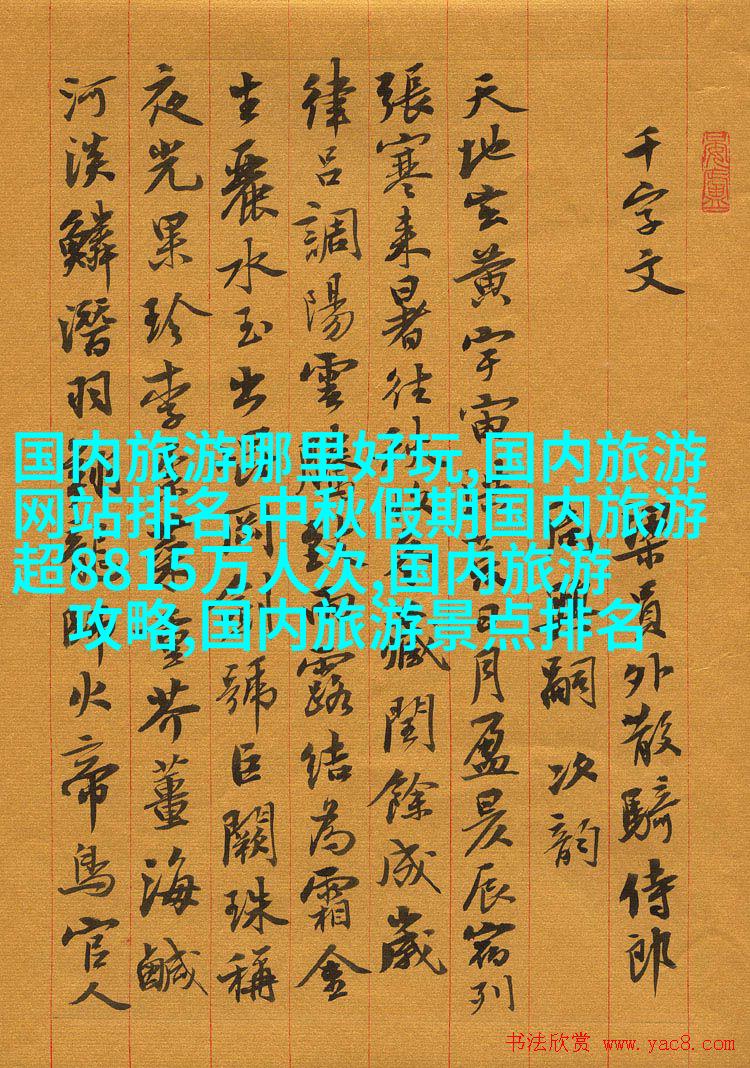 千字文
梁員外散騎侍郎
周興嗣次韵
天地玄黄宇宙洪荒日月盈昃辰宿列
張寒来暑往秋收冬藏閏餘成歲
律呂調陽雲騰致雨露結為霜金
生麗水玉出崑岡劍號巨闕珠稱
夜光果珍李柰菜重芥薑海鹹
河淡鱗潛羽翔龍師火帝鳥官人
国内旅游哪里好玩,国内旅游
网站排名,中秋假期国内旅游
超8815万人次,国内旅游
攻略,国内旅游景点排名
书法欣赏 www.yac8.com